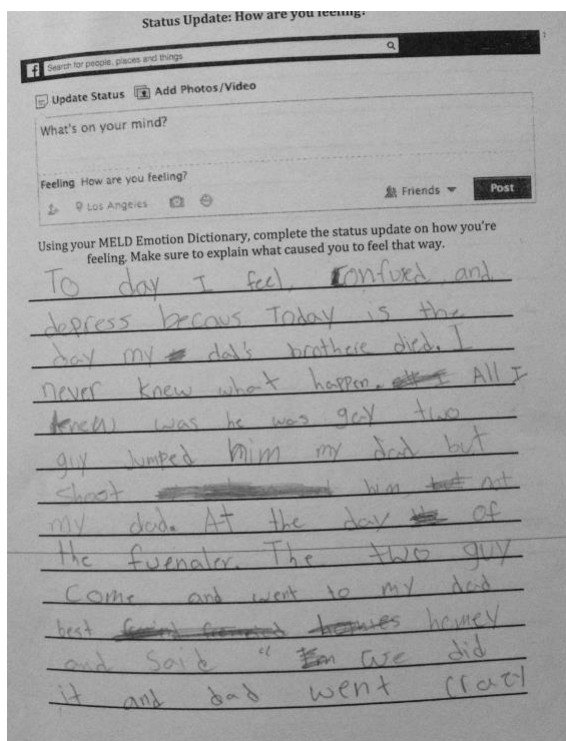 Status Update: How are you feeling?
f Search for people, places and things
Update Status Add Photos/Video
What's on your mind?
Feeling How are you feeling?
Los Angeles Friends Post
Using your MELD Emotion Dictionary, complete the status update on how you're
feeling. Make sure to explain what caused you to feel that way.
To day I feel, confused and
depress becaus Today is the
day my dad's brothere died. I
never knew what happen. All I
knew was he was gay two
guy Jumped him my dad but
shoot him, not
my dad. At the day of
the fuenaler. The two guy
come and went to my dad
best homey
and said " we did
it and dad went crazy